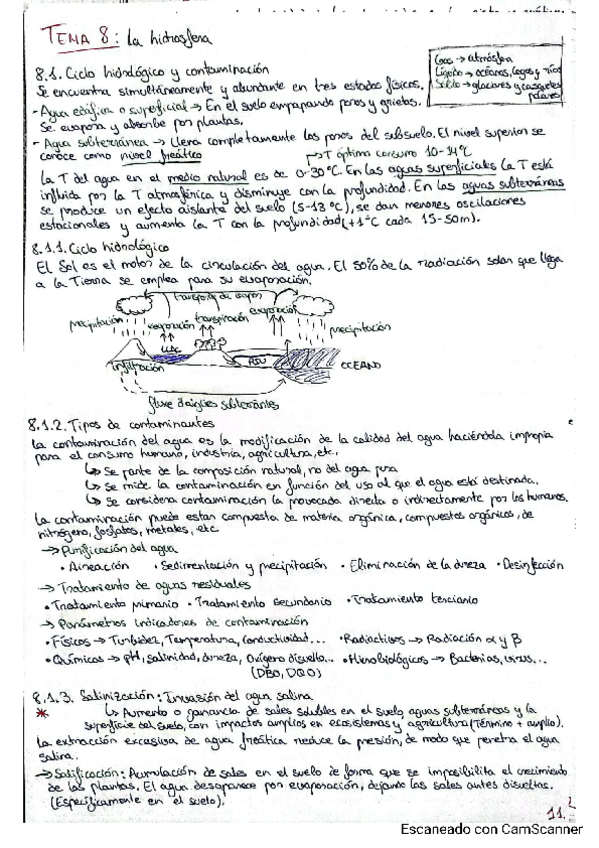 TEMA 8: La hidrosfera
Gas → atmósfera
Líquido → océanos, lagos y ríos
Sólido → glaciares y casquetes polares
8.1. Ciclo hidrológico y contaminación
Se encuentra simultáneamente y abundante en tres estados físicos.
- Agua edáfica o superficial → En el suelo empapando poros y grietas.
Se evapora y absorbe por plantas.
- Agua subterránea → Llena completamente los poros del subsuelo. El nivel superior se
conoce como nivel freático
→ T óptima consumo 10-14°C
La T del agua en el medio natural es de 0-30°C. En las aguas superficiales la T está
influida por la T atmosférica y disminuye con la profundidad. En las aguas subterráneas
se produce un efecto aislante del suelo (5-13°C), se dan menores oscilaciones
estacionales y aumenta la T con la profundidad (+1°C cada 15-50m).
8.1.1. Ciclo hidrológico
El Sol es el motor de la circulación del agua. El 50% de la radiación solar que llega
a la Tierra se emplea para su evaporación.
transporte de vapor
precipitación
evaporación
transpiración
evaporación
precipitación
LLAC
RIU
OCEANO
infiltración
fluxe d'aigües subterrànies
8.1.2. Tipos de contaminantes
La contaminación del agua es la modificación de la calidad del agua haciéndola impropia
para el consumo humano, industria, agricultura, etc.
↳ Se parte de la composición natural, no del agua pura
↳ Se mide la contaminación en función del uso al que el agua está destinada.
↳ Se considera contaminación la provocada directa o indirectamente por los humanos.
La contaminación puede estar compuesta de materia orgánica, compuestos orgánicos, de
nitrógeno, fosfatos, metales, etc
→ Purificación del agua
• Aireación • Sedimentación y precipitación • Eliminación de la dureza • Desinfección
→ Tratamiento de aguas residuales
• Tratamiento primario • Tratamiento secundario • Tratamiento terciario
→ Parámetros indicadores de contaminación
• Físicos → Turbidez, Temperatura, conductividad... • Radiactivos → Radiación α y β
• Químicos → pH, salinidad, dureza, Oxígeno disuelto... • Microbiológicos → Bacterias, virus...
(DBO, DQO)
8.1.3. Salinización: Invasión del agua salina
* ↳ Aumento o ganancia de sales solubles en el suelo, aguas subterráneas y la
superficie del suelo, con impactos amplios en ecosistemas y agricultura (Término + amplio).
La extracción excesiva de agua freática reduce la presión, de modo que penetra el agua
salina.
→ Salificación: Acumulación de sales en el suelo de forma que se imposibilita el crecimiento
de las plantas. El agua desaparece por evaporación, dejando las sales antes disueltas.
(Específicamente en el suelo).
11.
Escaneado con CamScanner